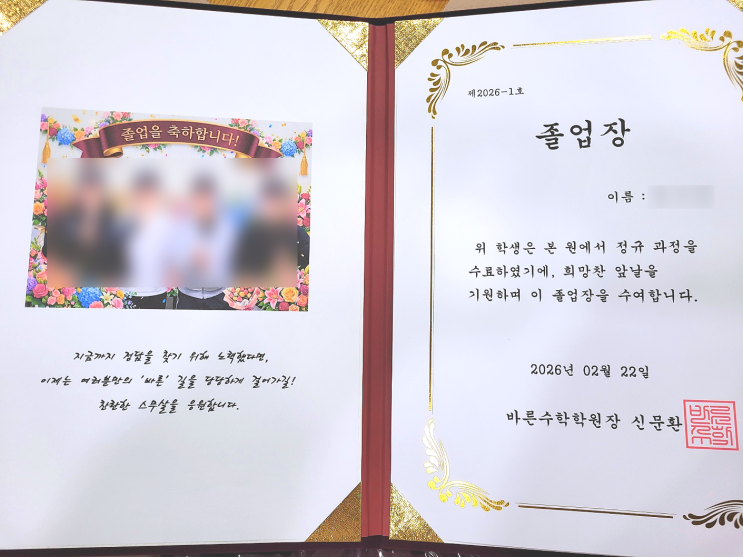 졸업을 축하합니다!
지금까지 정답을 찾기 위해 노력했다면,
이제는 여러분만의 '바른' 길을 당당하게 걸어가길!
찬란한 스무살을 응원합니다.
제2026-1호
졸업장
이름 :
위 학생은 본 원에서 정규 과정을
수료하였기에, 희망찬 앞날을
기원하며 이 졸업장을 수여합니다.
2026년 02월 22일
바른수학학원장 신문환